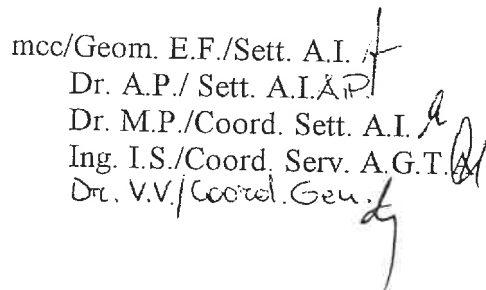 mcc/Geom. E.F./Sett. A.I.
Dr. A.P./ Sett. A.I. A.P.
Dr. M.P./Coord. Sett. A.I.
Ing. I.S./Coord. Serv. A.G.T.A.
Dr. V.V./Coord. Gen.